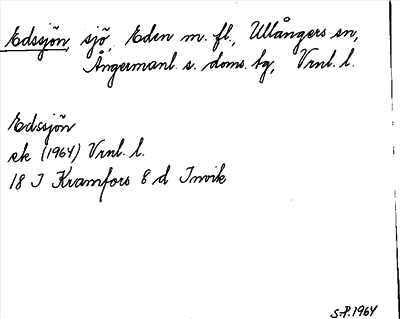 Edssjön, sjö, Eden m. fl., Ullångers sn,
Ångermanl. s. doms. tg, Vrnl. l.
Edssjön
ek (1964) Vrnl. l.
18 I Kramfors 8 d Invik
S-P. 1964